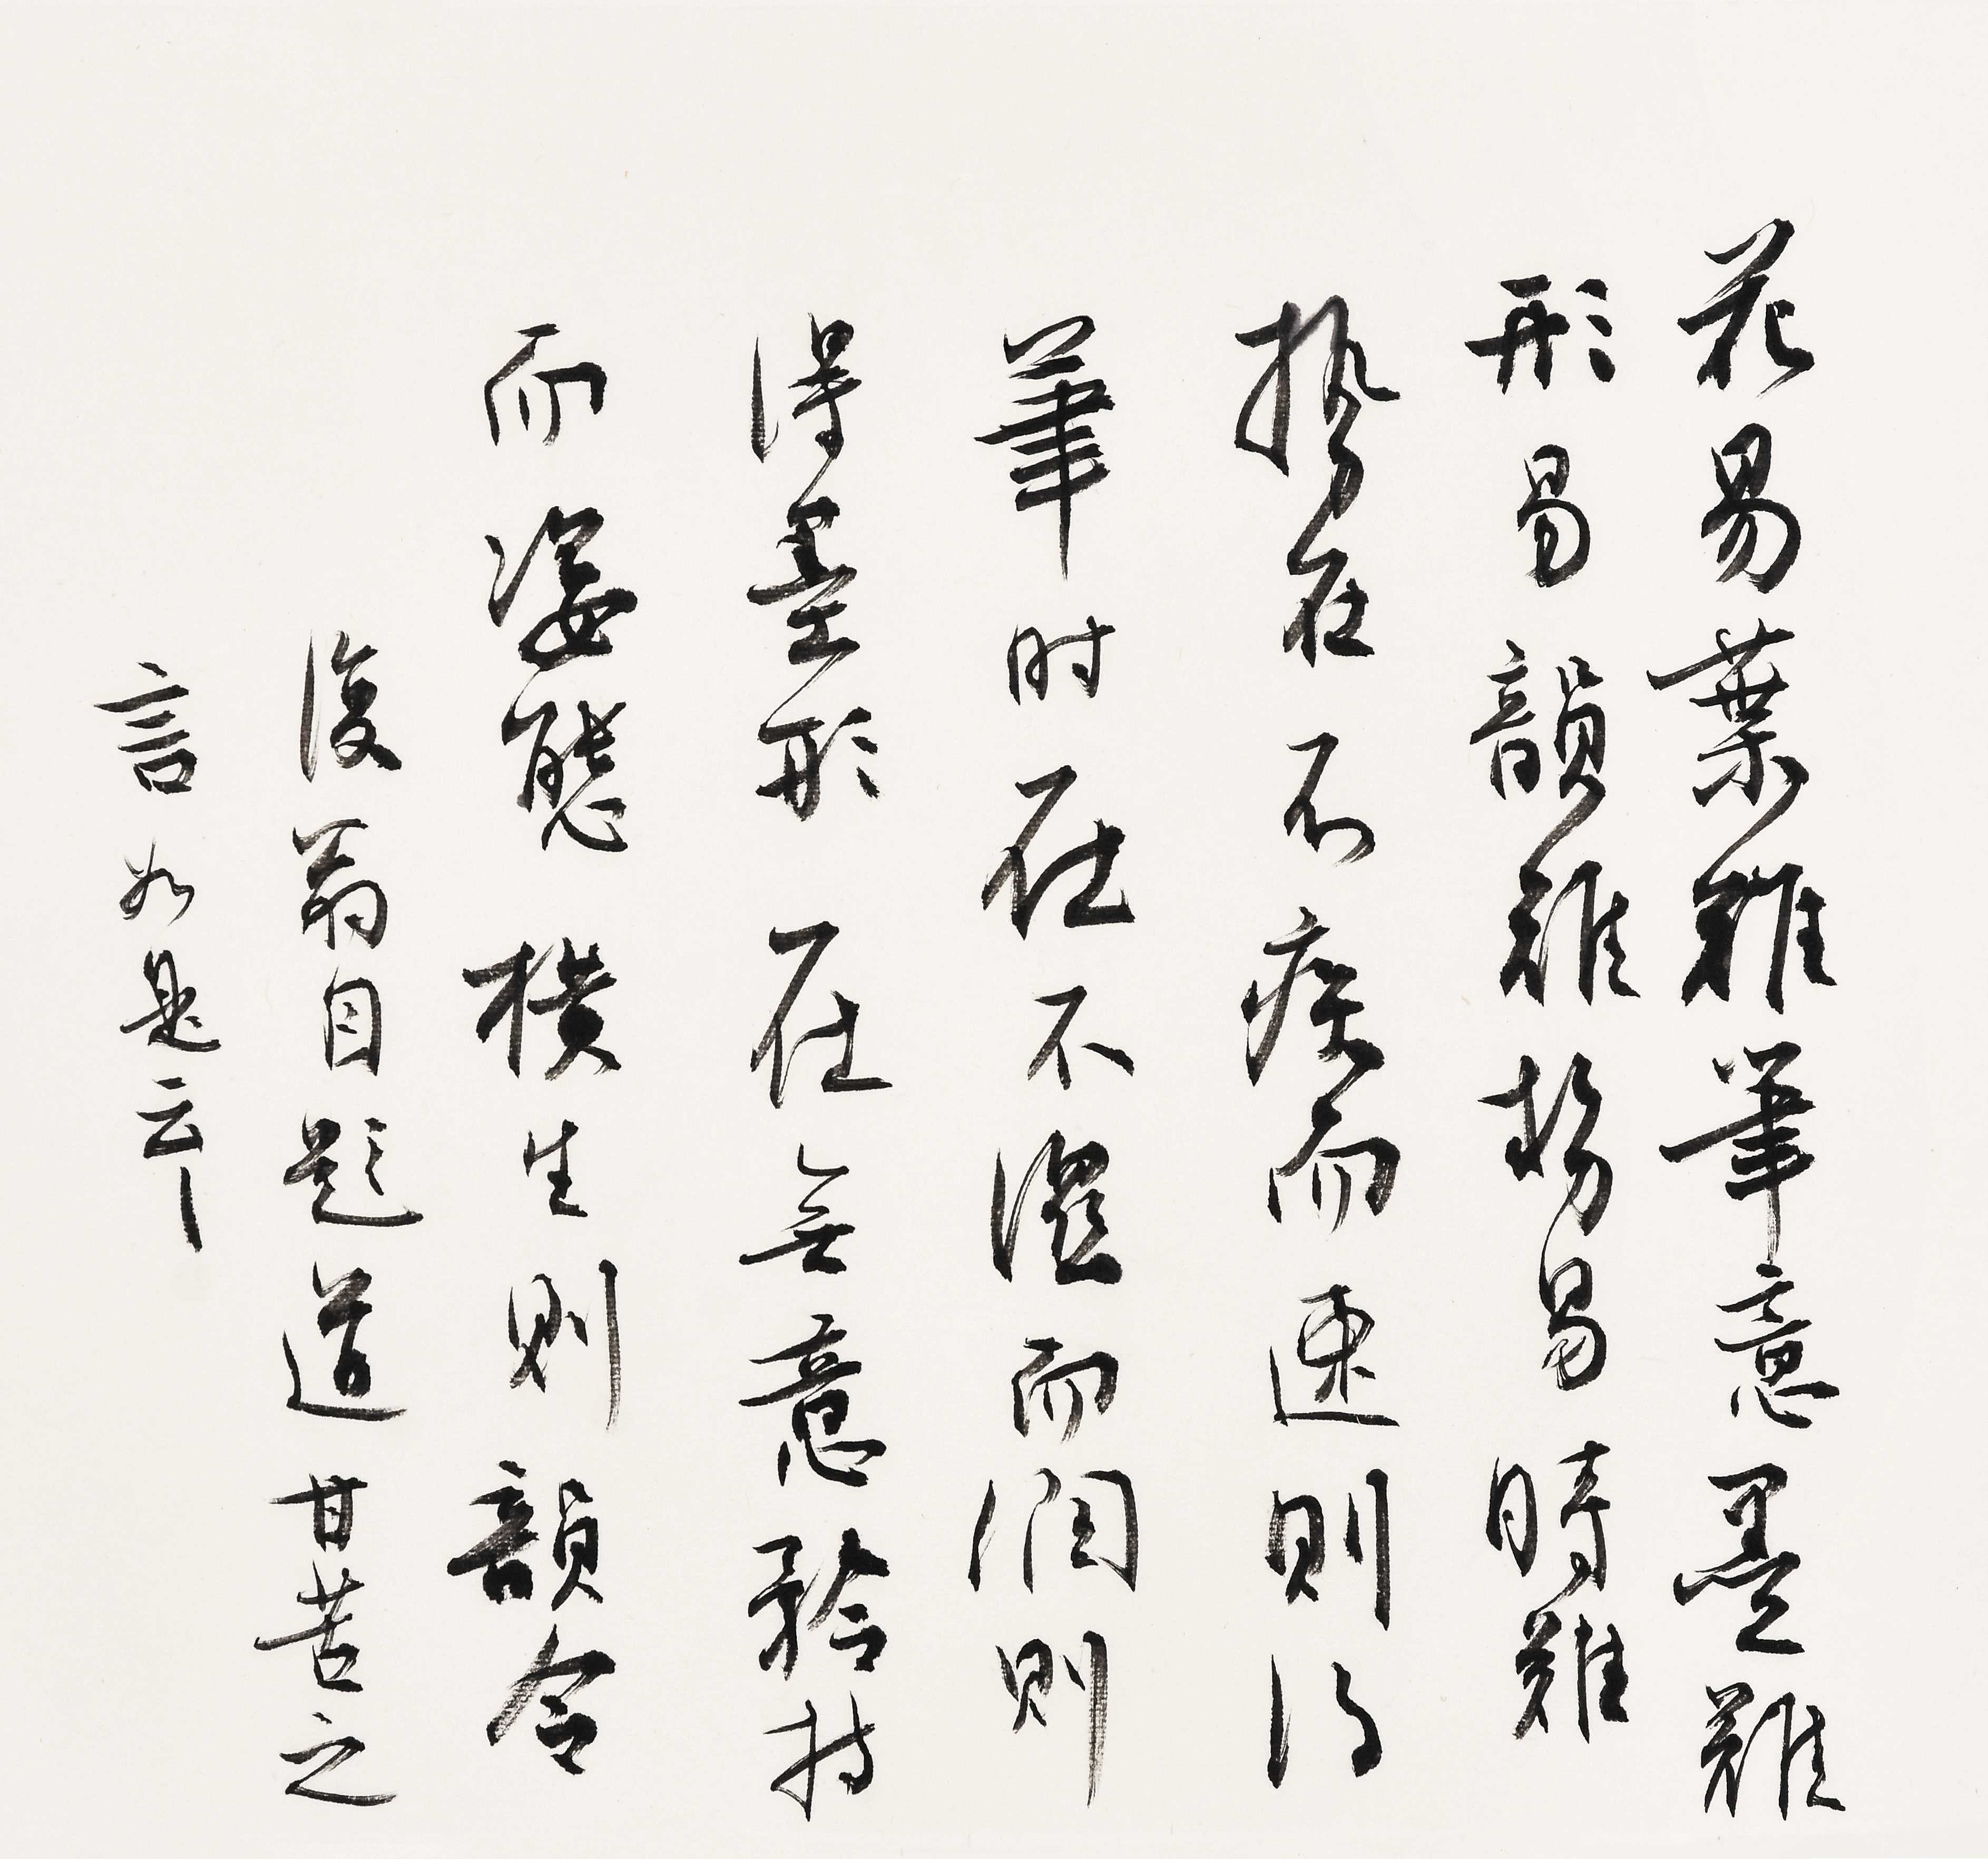 花易葉難筆意墨難
形易韻難勢易時難
勢在不疾而速則得
筆时在不濕而潤則
得墨形在無意矜持
而姿態橫生則韻含
復翁自題道甘苦之
言如是云